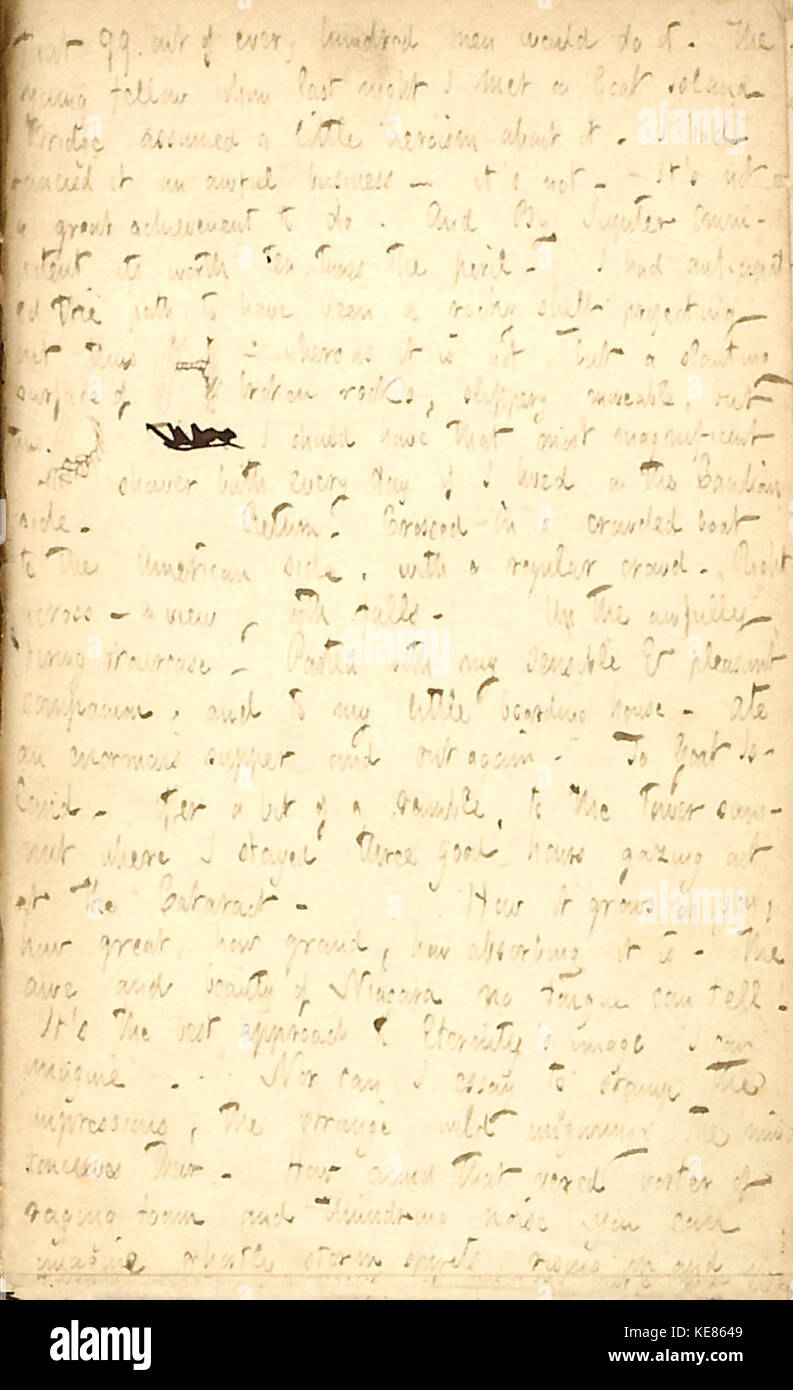 that 99. out of every hundred men would do it. The
young fellow whom last night I met on Goat Island
Bridge assumed a little heroism about it. I had
fancied it an awful business — it's not. - It's not
a great achievement to do. And By Jupiter Omni-
potent its worth ten times the peril. I had anticipat
ed the path to have been a rocky shelf projecting
out thus whereas it is not but a slanting
surface of broken rocks, slippery moveable, but
I should have that most magnificent
shower bath every day if I lived on the Candian
side. Return. Crossed in a crowded boat
to the American side, with a regular crowd. Right
across - a view both falls - Up the awfully
tiring staircase. Parted with my sensible & pleasant
companion, and to my little boarding house. Ate
an enormous supper and out again. To Goat Is-
land. After a bit of a ramble, to the Tower sum-
mit where I stayed three good hours gazing out
at the Cataract. How it grows on you,
how great, how grand, how absorbing it is. The
awe and beauty of Niagara no tongue can tell.
It's the best approach to Eternity's image I can
imagine. Nor can I essay to stamp the
impressions, the strange wild the mind
conceives there. How amid that vortex of
raging foam and thundring noise you can
imagine ghostly storm spirits rising up and
alamy
Image ID: KE8649
www.alamy.com